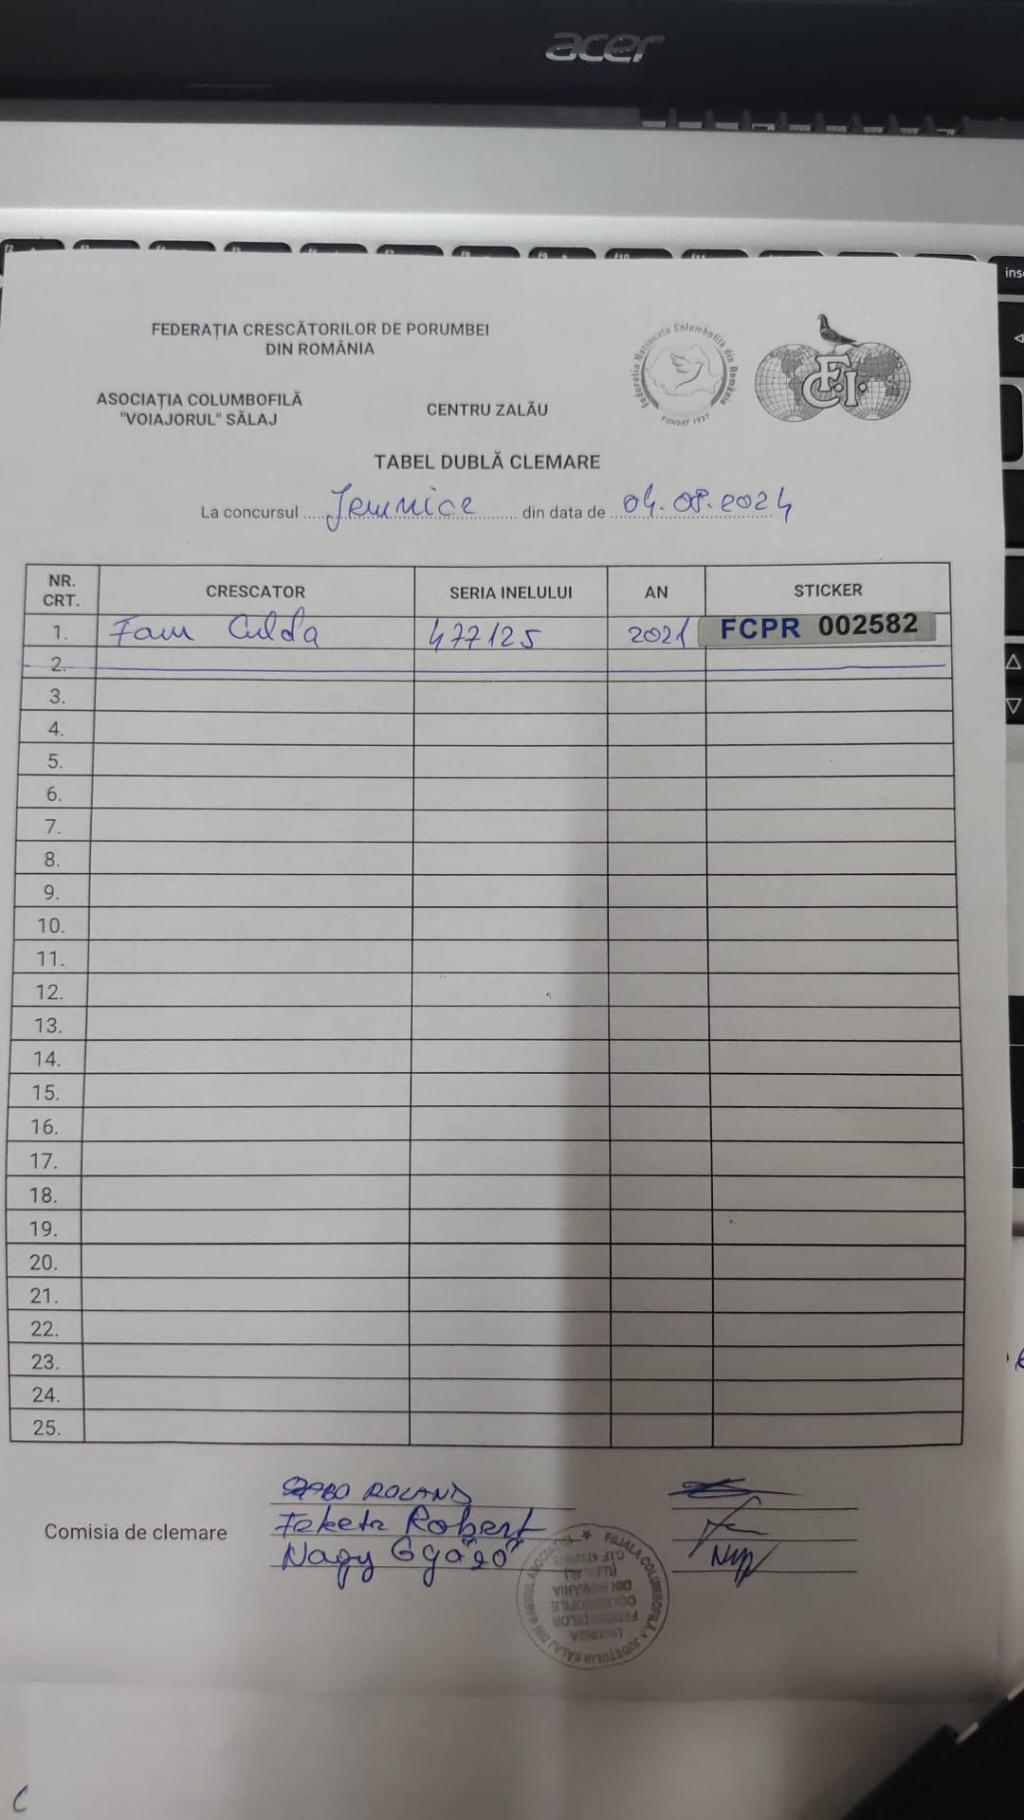 acer
FEDERAȚIA CRESCĂTORILOR DE PORUMBEI
DIN ROMÂNIA
ASOCIAȚIA COLUMBOFILĂ
"VOIAJORUL" SĂLAJ
CENTRU ZALĂU
Federatia Nationala Columbofila din România
FONDAT 1937
F.C.I.
TABEL DUBLĂ CLEMARE
La concursul Jemnice din data de 04.08.2024
NR. CRT. CRESCATOR SERIA INELULUI AN STICKER
1. Fam Culda 477125 2021 FCPR 002582
2.
3.
4.
5.
6.
7.
8.
9.
10.
11.
12.
13.
14.
15.
16.
17.
18.
19.
20.
21.
22.
23.
24.
25.
SZABO ROLAND
Comisia de clemare Fekete Robert
Nagy
FILIALA COLUMBOFILĂ JUDEȚULUI SĂLAJ DIN CADRUL ASOCIAȚIEI
UNIUNEA
COLUMBOFILE
DIN ROMÂNIA
ins